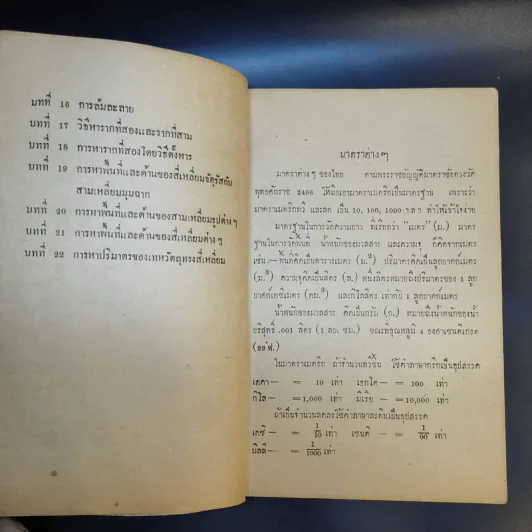 บทที่ 16 การล้มละลาย
บทที่ 17 วิธีหารากที่สองและรากที่สาม
บทที่ 18 การหารากที่สองโดยวิธีตั้งหาร
บทที่ 19 การหาพื้นที่และด้านของสี่เหลี่ยมจัตุรัสกับ
สามเหลี่ยมมุมฉาก
บทที่ 20 การหาพื้นที่และด้านของสามเหลี่ยมรูปต่าง ๆ
บทที่ 21 การหาพื้นที่และด้านของสี่เหลี่ยมต่าง ๆ
บทที่ 22 การหาปริมาตรของแท่งวัตถุทรงสี่เหลี่ยม
มาตราต่าง ๆ
มาตราต่าง ๆ ของไทย ตามพระราชบัญญัติมาตราชั่งตวงวัด
พุทธศักราช 2466 ให้ถือเอามาตราเมตริกเป็นมาตรฐาน เพราะว่า
มาตราเมตริกทวี และลด เป็น 10, 100, 1000 ฯลฯ ทำให้เข้าใจง่าย
มาตรฐานในการวัดความยาว ก็เรียกว่า "เมตร" (ม.) มาตร
ฐานในการวัดพื้นที่ น้ำหนักของมวลสาร และความจุ ก็คิดจากเมตร
เช่น :— พื้นที่คิดเป็นตารางเมตร (ม.²) ปริมาตรคิดเป็นลูกบาศก์เมตร
(ม.³) ความจุคิดเป็นลิตร (ล.) หนึ่งลิตรหมายถึงปริมาตรของ 1 ลูก
บาศก์เดซิเมตร (ดม.³) และกิโลลิตร เท่ากับ 1 ลูกบาศก์เมตร
น้ำหนักของมวลสาร คิดเป็นกรัม (ก.) หมายถึงน้ำหนักของน้ำ
บริสุทธิ์ .001 ลิตร (1 ลบ. ซม.) ขณะที่อุณหภูมิ 4 องศาเซนติเกรด
(39°ฟ.)
ในมาตราเมตริก ถ้าจำนวนทวีขึ้น ใช้คำภาษากรีกเป็นอุปสรรค
เดคา — = 10 เท่า เฮกโต — = 100 เท่า
กิโล — = 1,000 เท่า มิเรีย — = 10,000 เท่า
ถ้าเป็นจำนวนลดลงใช้คำภาษาละตินเป็นอุปสรรค
เดซิ — = 1/10 เท่า เซนติ — = 1/100 เท่า
มิลลิ — = 1/1000 เท่า